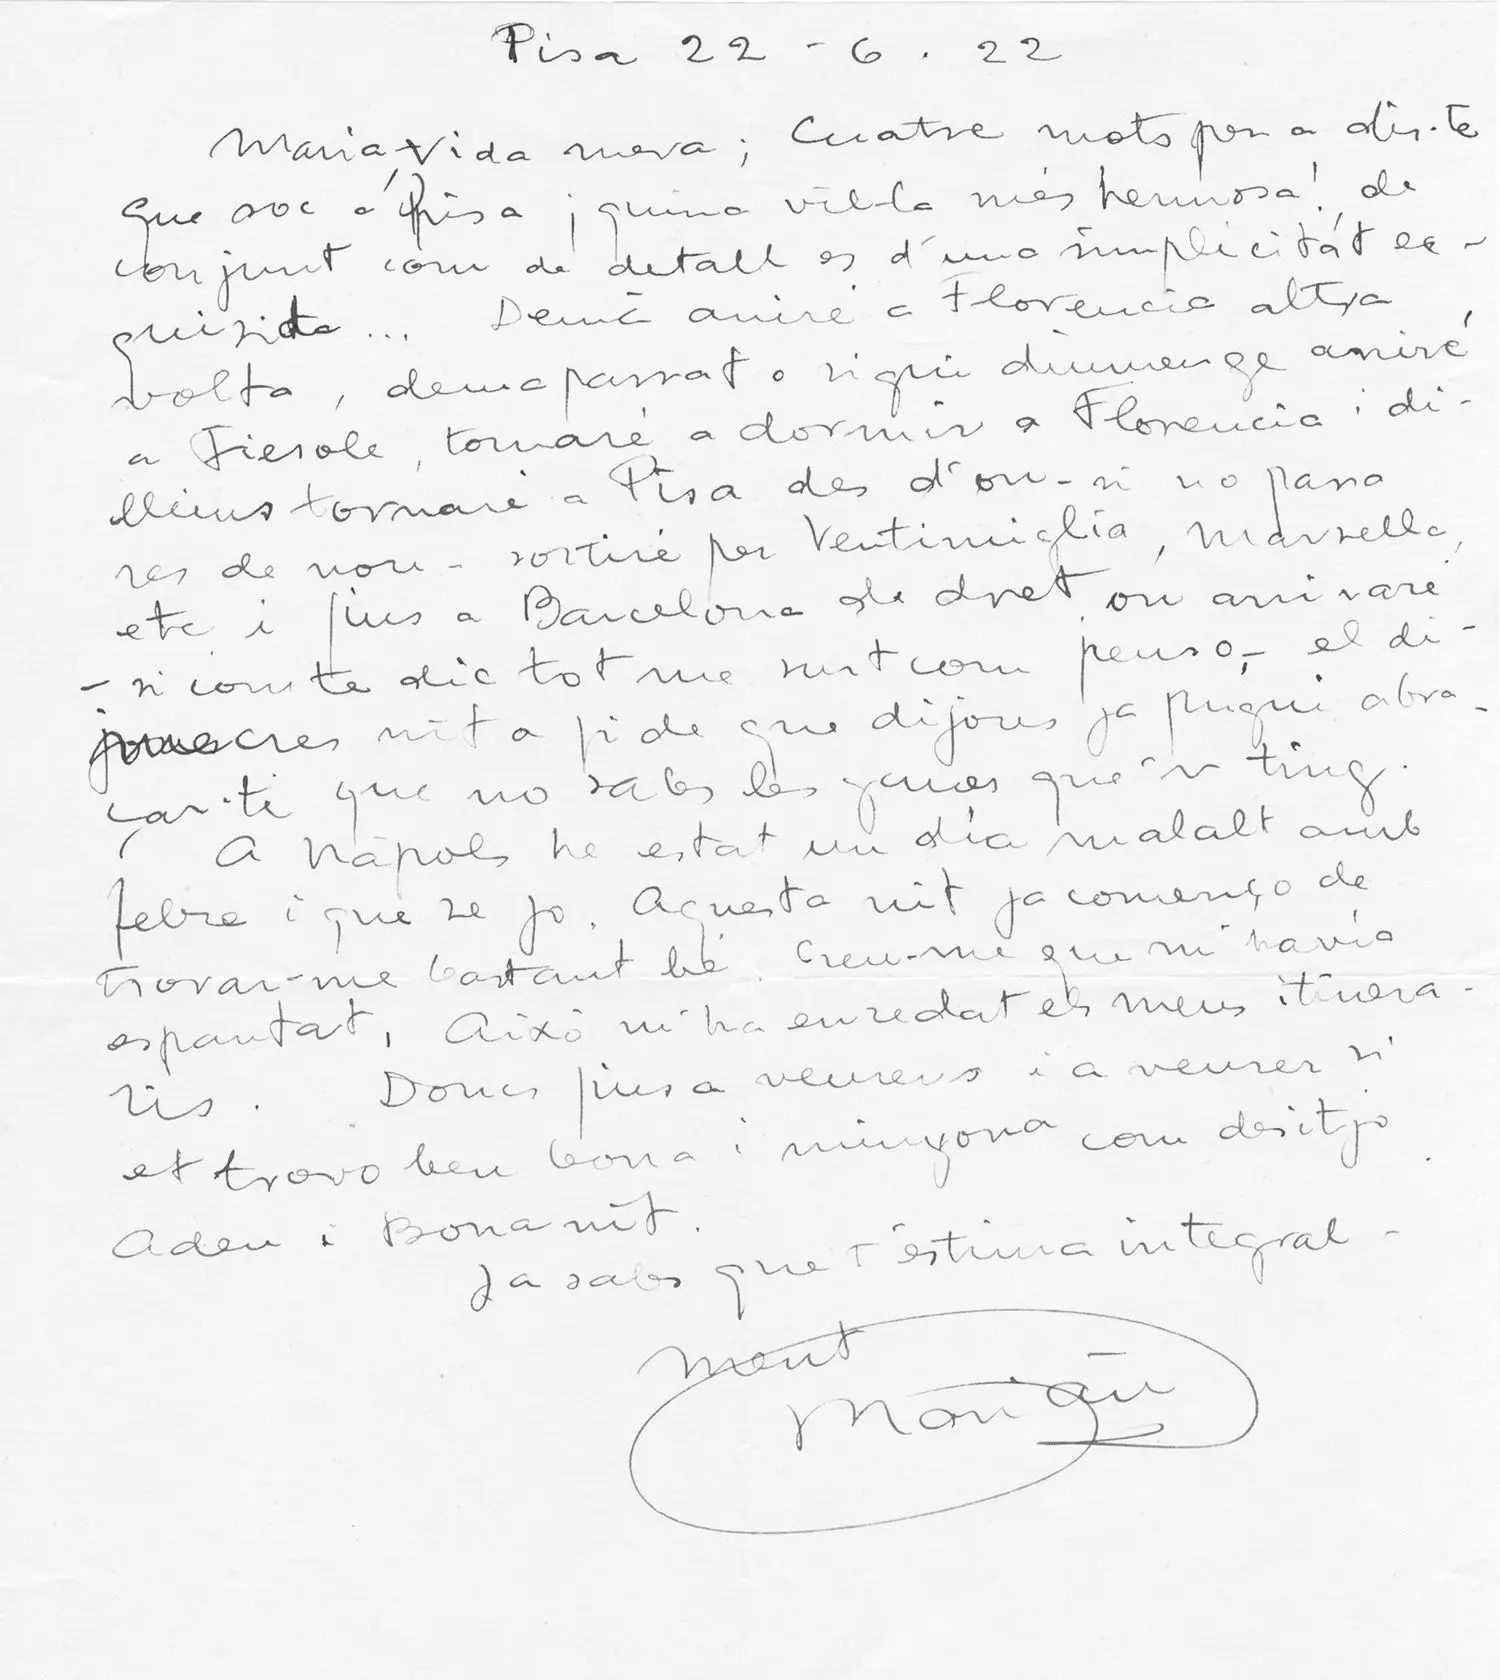 Pisa 22 - 6 . 22
Maria, vida meva; Cuatre mots per a dir-te
que soc a Pisa ¡quina vil-la més hermosa! de
conjunt com de detall es d'una simplicitát ex-
quisida... Demà aniré a Florencia altra
volta, demapassat o sigui diumenge aniré
a Fiesole, tornaré a dormir a Florencia i di-
lluns tornaré a Pisa des d'on - si no passa
res de nou - sortiré per Ventimiglia, Marsella,
etc i fins a Barcelona de dret on arrivaré
- si com te dic tot me surt com penso, - el di-
mecres nit a fi de que dijous ja pugui abra-
çar-te que no sabs les ganes que'n ting.
A Nàpols he estat un día malalt amb
febre i que se jo. Aquesta nit ja començo de
trovar-me bastant bé. Creu-me que m'havía
espantat, Aixó m'ha enredat els meus itinera-
ris. Doncs fins a veurens i a veurer si
et trovo ben bona i minyona com desitjo.
Adeu i Bona nit.
Ja sabs que t'estima integral-
ment
Marián